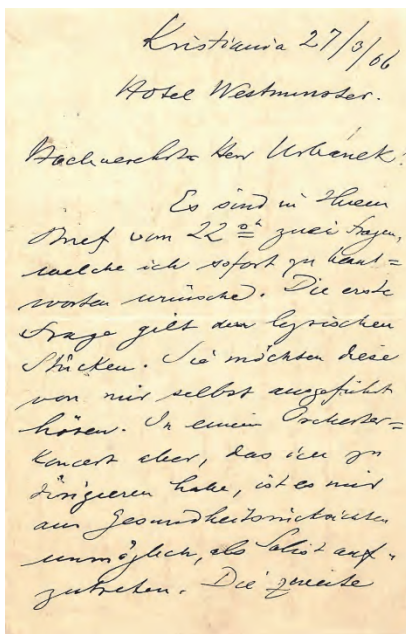 Kristiania 27/3/06
Hotel Westminster.
Hochverehrter Herr Urbánek!
Es sind in Ihrem
Brief vom 22ten zwei Fragen,
welche ich sofort zu beant=
worten wünsche. Die erste
Frage gilt den lyrischen
Stücken. Sie möchten diese
von mir selbst ausgeführt
hören. In einem Orchester=
koncert aber, das ich zu
dirigieren habe, ist es mir
aus Gesundheitsrücksichten
unmöglich, als Solist auf=
zutreten. Die zweite